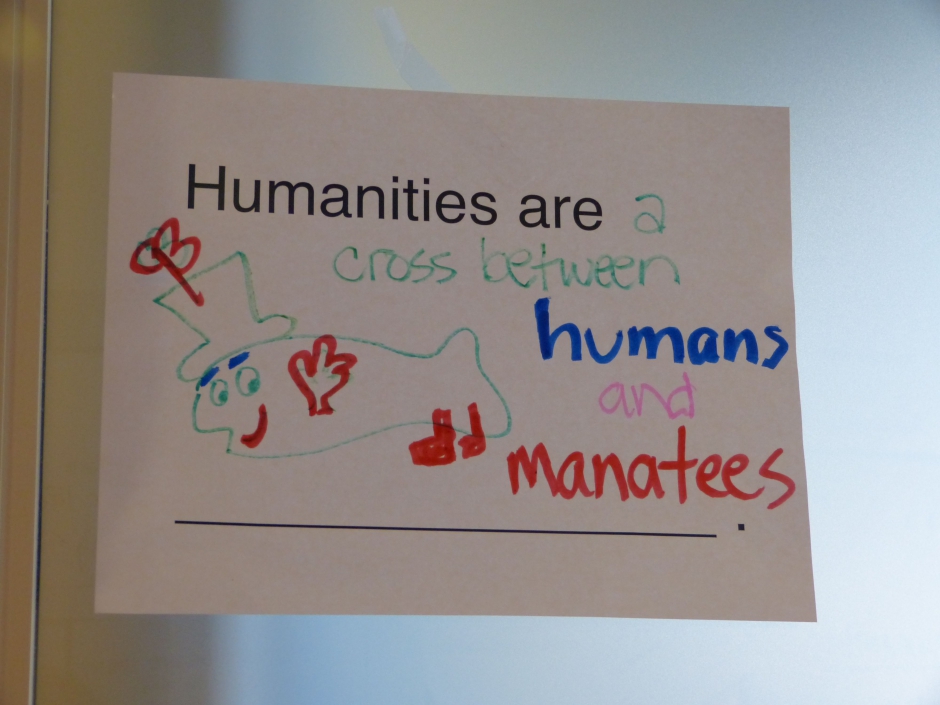 Humanities are a
cross between
humans
and
manatees
.